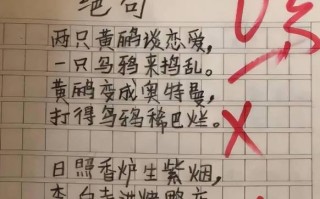 绝句
两只黄鹂谈恋爱，
一只乌鸦来捣乱。
黄鹂变成奥特曼，
打得乌鸦稀巴烂。
日照香炉生紫烟，
李白